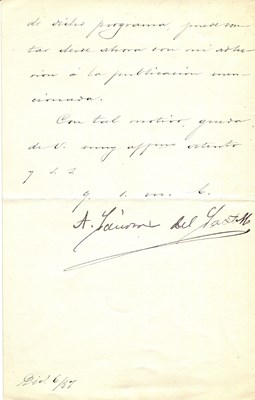 de dicho programa, puede con-
tar desde ahora con mi adhe-
sion á la publicacion men-
cionada.
Con tal motivo, queda
de V. muy affmo atento
y s. s.
q. s. m. b.
A. del
Dic 6/87